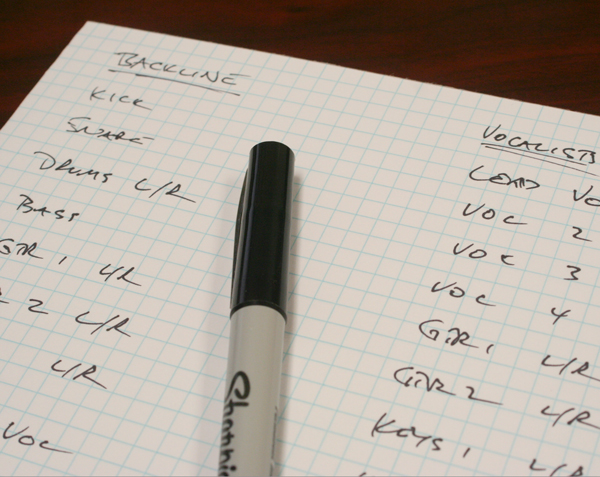 BACKLINE
KICK
SNARE
DRUMS L/R
BASS
GTR 1 L/R
2 L/R
L/R
VOC
VOCALISTS
LEAD
VOC 2
VOC 3
VOC 4
GTR 1 L/R
GTR 2 L/R
KEYS 1 L/R